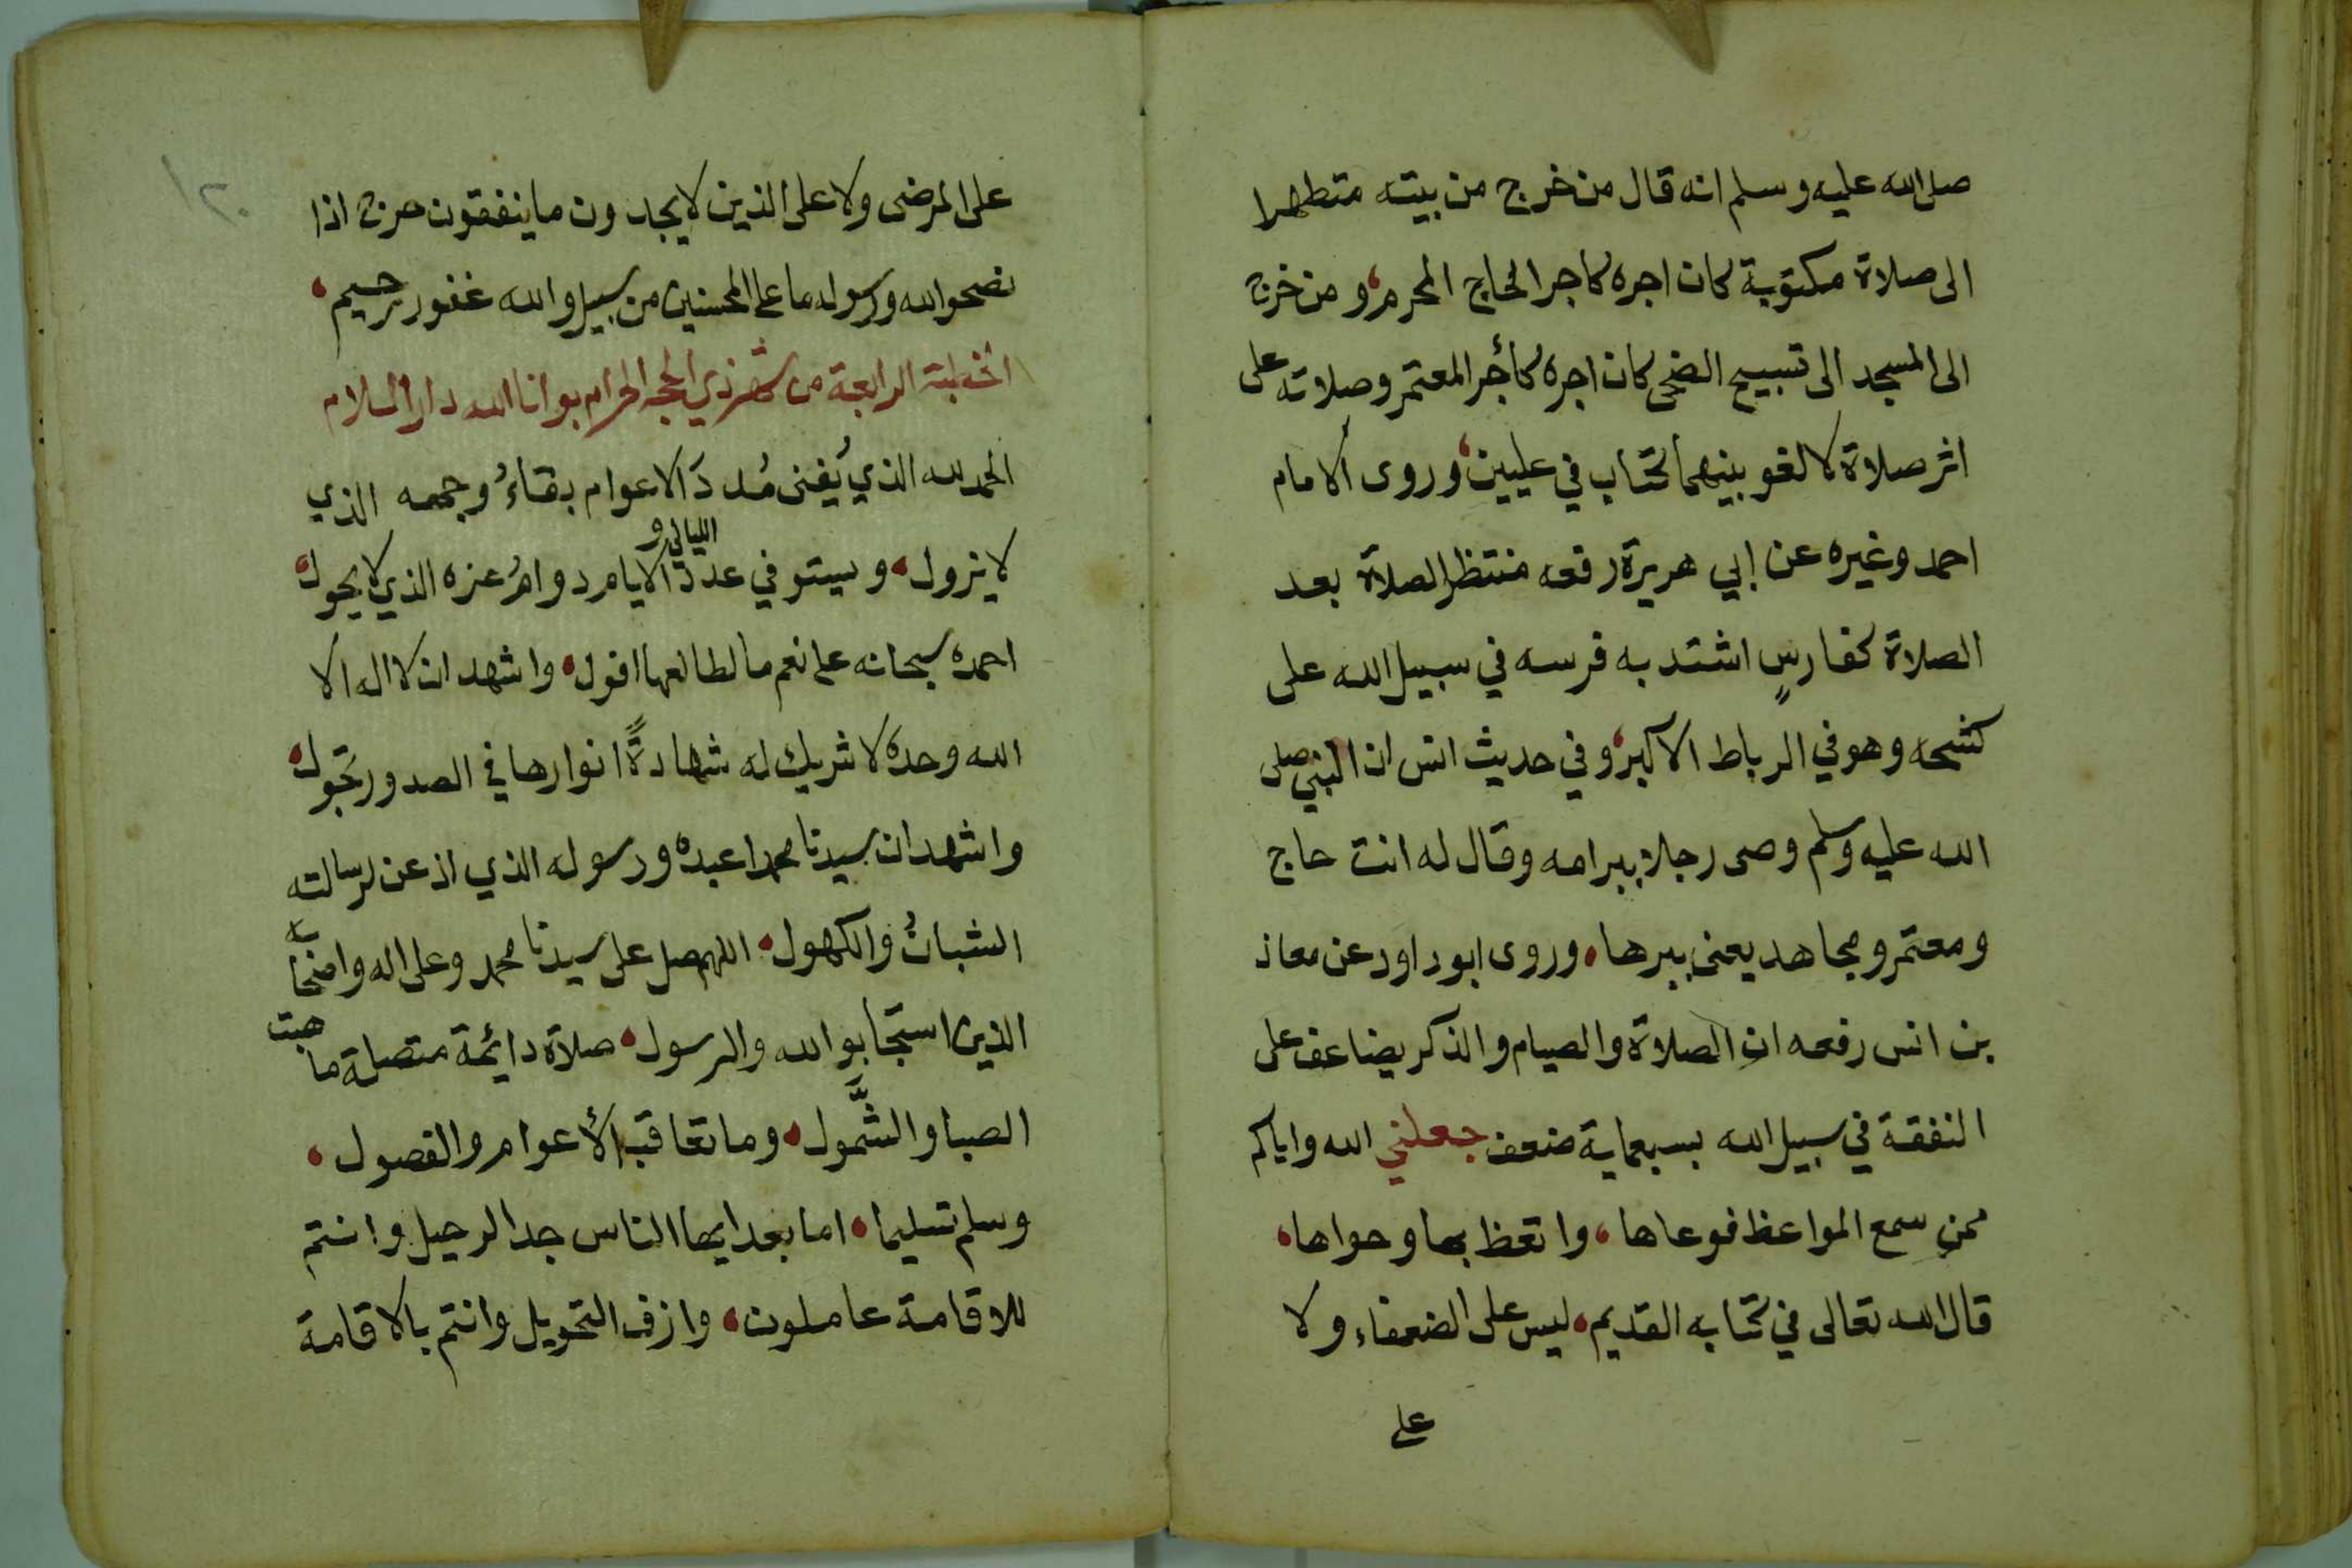 صلى الله عليه وسلم انه قال من خرج من بيته متطهرا
الى صلاة مكتوبة كان اجره كاجر الحاج المحرم، ومن خرج
الى المسجد الى تسبيح الضحى كان اجره كأجر المعتمر وصلاته على
اثر صلاة لا لغو بينهما كتاب في عليين، وروى الامام
احمد وغيره عن ابي هريرة رفعه منتظر الصلاة بعد
الصلاة كفارسٍ اشتد به فرسه في سبيل الله على
كشحه وهو في الرباط الاكبر، وفي حديث انس ان النبي صلى
الله عليه وسلم وصى رجلا ببر امه وقال له انت حاج
ومعتمر ومجاهد يعنى ببرها، وروى ابو داود عن معاذ
بن انس رفعه ان الصلاة والصيام والذكر يضاعف على
النفقة في سبيل الله بسبعماية ضعف جعلني الله واياكم
ممن سمع المواعظ فوعاها، واتعظ بها وحواها،
قال الله تعالى في كتابه القديم، ليس على الضعفاء ولا
على
١٢٠
على المرضى ولا على الذين لا يجدون ما ينفقون حرج اذا
نصحوا لله ورسوله ما على المحسنين من سبيل والله غفور رحيم،
الخطبة الرابعة من شهر ذي الحجه الحرام بوانا الله دار السلام
الحمد لله الذي يُفنى مُددَ الاعوام بقاءُ وجهه الذي
لا يزول، ويستوفي عدد الليالي و الايام دوامُ عزه الذي لا يحول،
احمده سبحانه على نعم ما لطالعها افول، واشهد ان لا اله الا
الله وحده لا شريك له شهادةً انوارها في الصدور تجول،
واشهد ان سيدنا محمدا عبده ورسوله الذي اذعن لرسالته
الشبانُ والكهول، اللهم صل على سيدنا محمد وعلى اله واصحابه
الذين استجابوا لله والرسول، صلاة دائمة متصلة ما هبت
الصبا والشَّمول، وما تعاقب الأعوام والفصول،
وسلم تسليما، اما بعد ايها الناس جد الرحيل وانتم
للاقامة عاملون، وازف التحويل وانتم بالاقامة